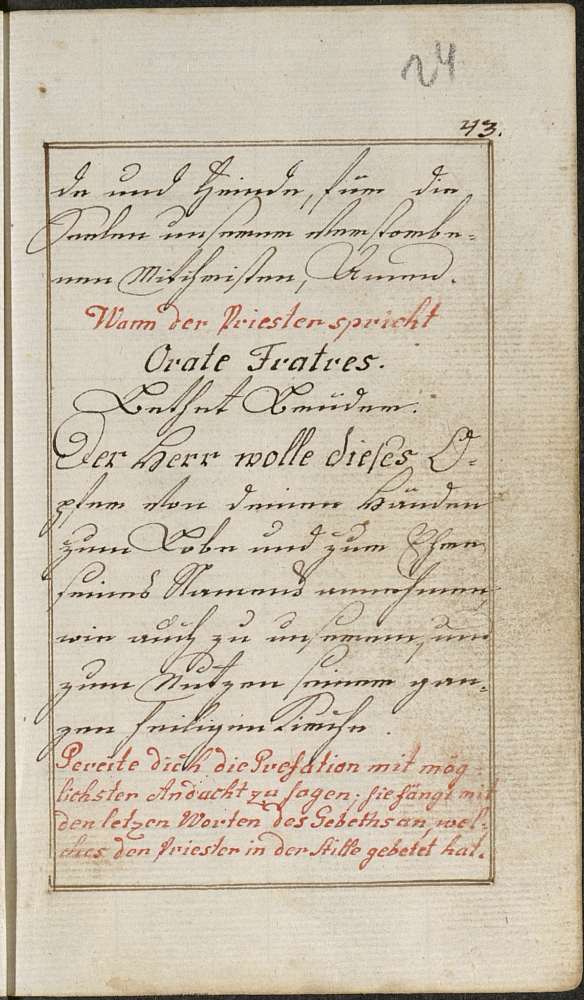 24
43.
de und Feinde, für die
Seelen unserer verstorbe=
nen Mitchristen, Amen.
Wann der Priester spricht
Orate Fratres.
Bethet Brüder.
Der Herr wolle dieses O=
pfer von deinen Händen
zum Lobe und zur Ehre
seines Namens annehmen,
wie auch zu unserem, und
zum Nutzen seiner gan=
zen heiligen Kirche.
Bereite dich die Prefation mit mög
lichster Andacht zu sagen; sie fängt mit
den letzen Worten des Gebeths an, wel=
ches der Priester in der Stille gebetet hat.